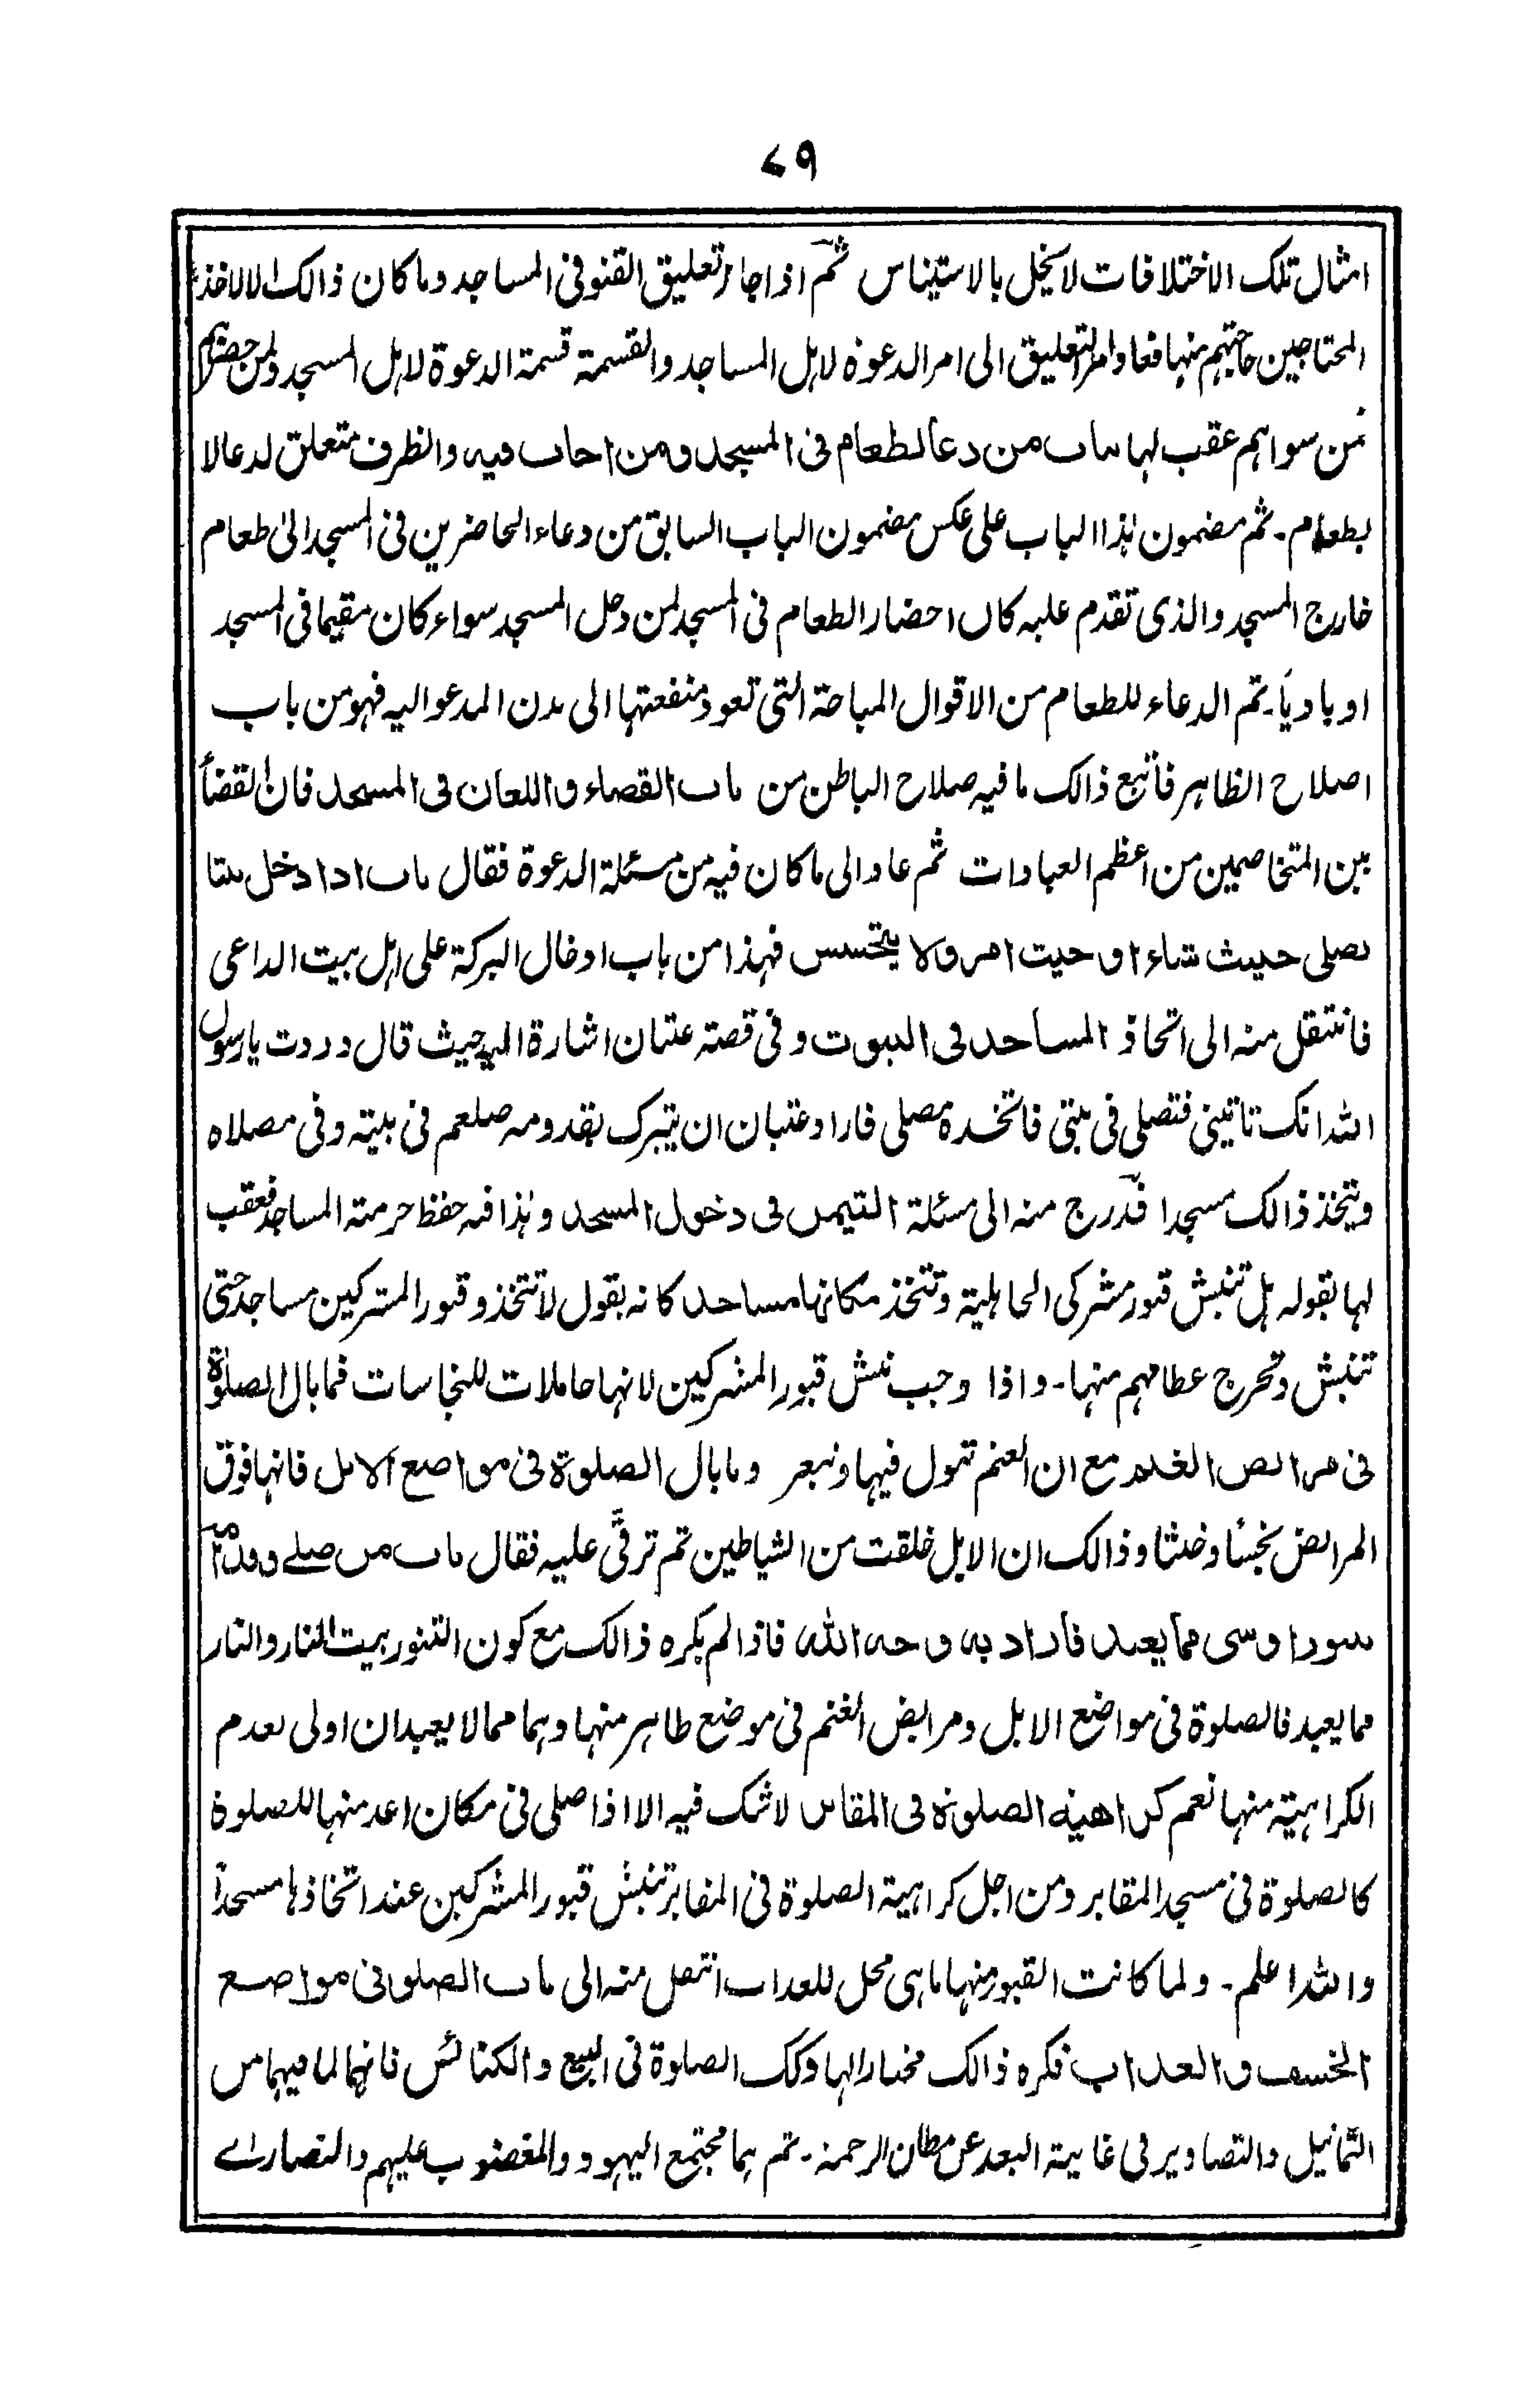 ٧٩
امثال تلك الاختلافات لا يخل بالاستيناس ثم اذا جاز تعليق القنو فى المساجد وما كان ذالك الا لاخذ
المحتاجين حاجتهم منها فعاد امر التعليق الى امر الدعوة لاهل المساجد والقسمة قسمة الدعوة لاهل المسجد ولمن حضرهم
من سواهم عقب لها باب من دعا لطعام فى المسجد ومن اجاب فيه والظرف متعلق لدعا لا
بطعام۔ ثم مضمون هذا الباب على عكس مضمون الباب السابق من دعاء الحاضرين فى المسجد الى طعام
خارج المسجد والذى تقدم عليه كان احضار الطعام فى المسجد لمن دخل المسجد سواء كان مقيما فى المسجد
او باديا۔ ثم الدعاء للطعام من الاقوال المباحة التى تعود منفعتها الى بدن المدعو اليه فهو من باب
اصلاح الظاهر فاتبع ذالك ما فيه صلاح الباطن من باب القضاء واللعان فى المسجد فان القضاء
بين المتخاصمين من اعظم العبادات ثم عاد الى ما كان فيه من مسئلة الدعوة فقال باب اذا دخل بيتا
يصلى حيث شاء او حيث امر ولا يتجسس فهذا من باب ادخال البركة على اهل بيت الداعى
فانتقل منه الى اتخاذ المساجد فى البيوت وفى قصة عتبان اشارة اليه حيث قال وددت يا رسول
الله انك تاتينى فتصلى فى بيتى فاتخذه مصلى فاراد عتبان ان يتبرك بقدومه صلعم فى بيته وفى مصلاه
ويتخذ ذالك مسجدا فتدرج منه الى مسئلة التيمن فى دخول المسجد وهذا فيه حفظ حرمة المساجد فعقب
لها بقوله هل تنبش قبور مشركى الجاهلية وتتخذ مكانها مساجد كانه يقول لا تتخذو قبور المشركين مساجد حتى
تنبش وتخرج عظامهم منها۔ واذا وجب نبش قبور المشركين لانها حاملات للنجاسات فما بال الصلوة
فى مرابض الغنم مع ان الغنم تبول فيها وتبعر وما بال الصلوة فى مواضع الابل فانها فوق
المرابض نجسا وخبثا وذالك ان الابل خلقت من الشياطين ثم ترقى عليه فقال باب من صلے وقدامه
تنور او شى مما يعبد فاراد به وجه الله فاذا لم يكره ذالك مع كون التنور بيت النار والنار
مما يعبد فالصلوة فى مواضع الابل ومرابض الغنم فى موضع طاهر منها وهما مما لا يعبدان اولى بعدم
الكراهية منها نعم كراهية الصلوة فى المقابر لا شك فيه الا اذا صلى فى مكان اعد منها للصلوة
كالصلوة فى مسجد المقابر ومن اجل كراهية الصلوة فى المقابر تنبش قبور المشركين عند اتخاذها مسجدا
والله اعلم۔ ولما كانت القبور منها ما هى محل للعذاب انتقل منه الى باب الصلوة فى مواضع
الخسف والعذاب فكره ذالك مختارا لها وكك الصلوة فى البيع والكنائس فانهما لما فيهما من
التماثيل والتصاوير فى غاية البعد عن مظان الرحمة۔ ثم هما مجتمع اليهود والمغضوب عليهم والنصاراے